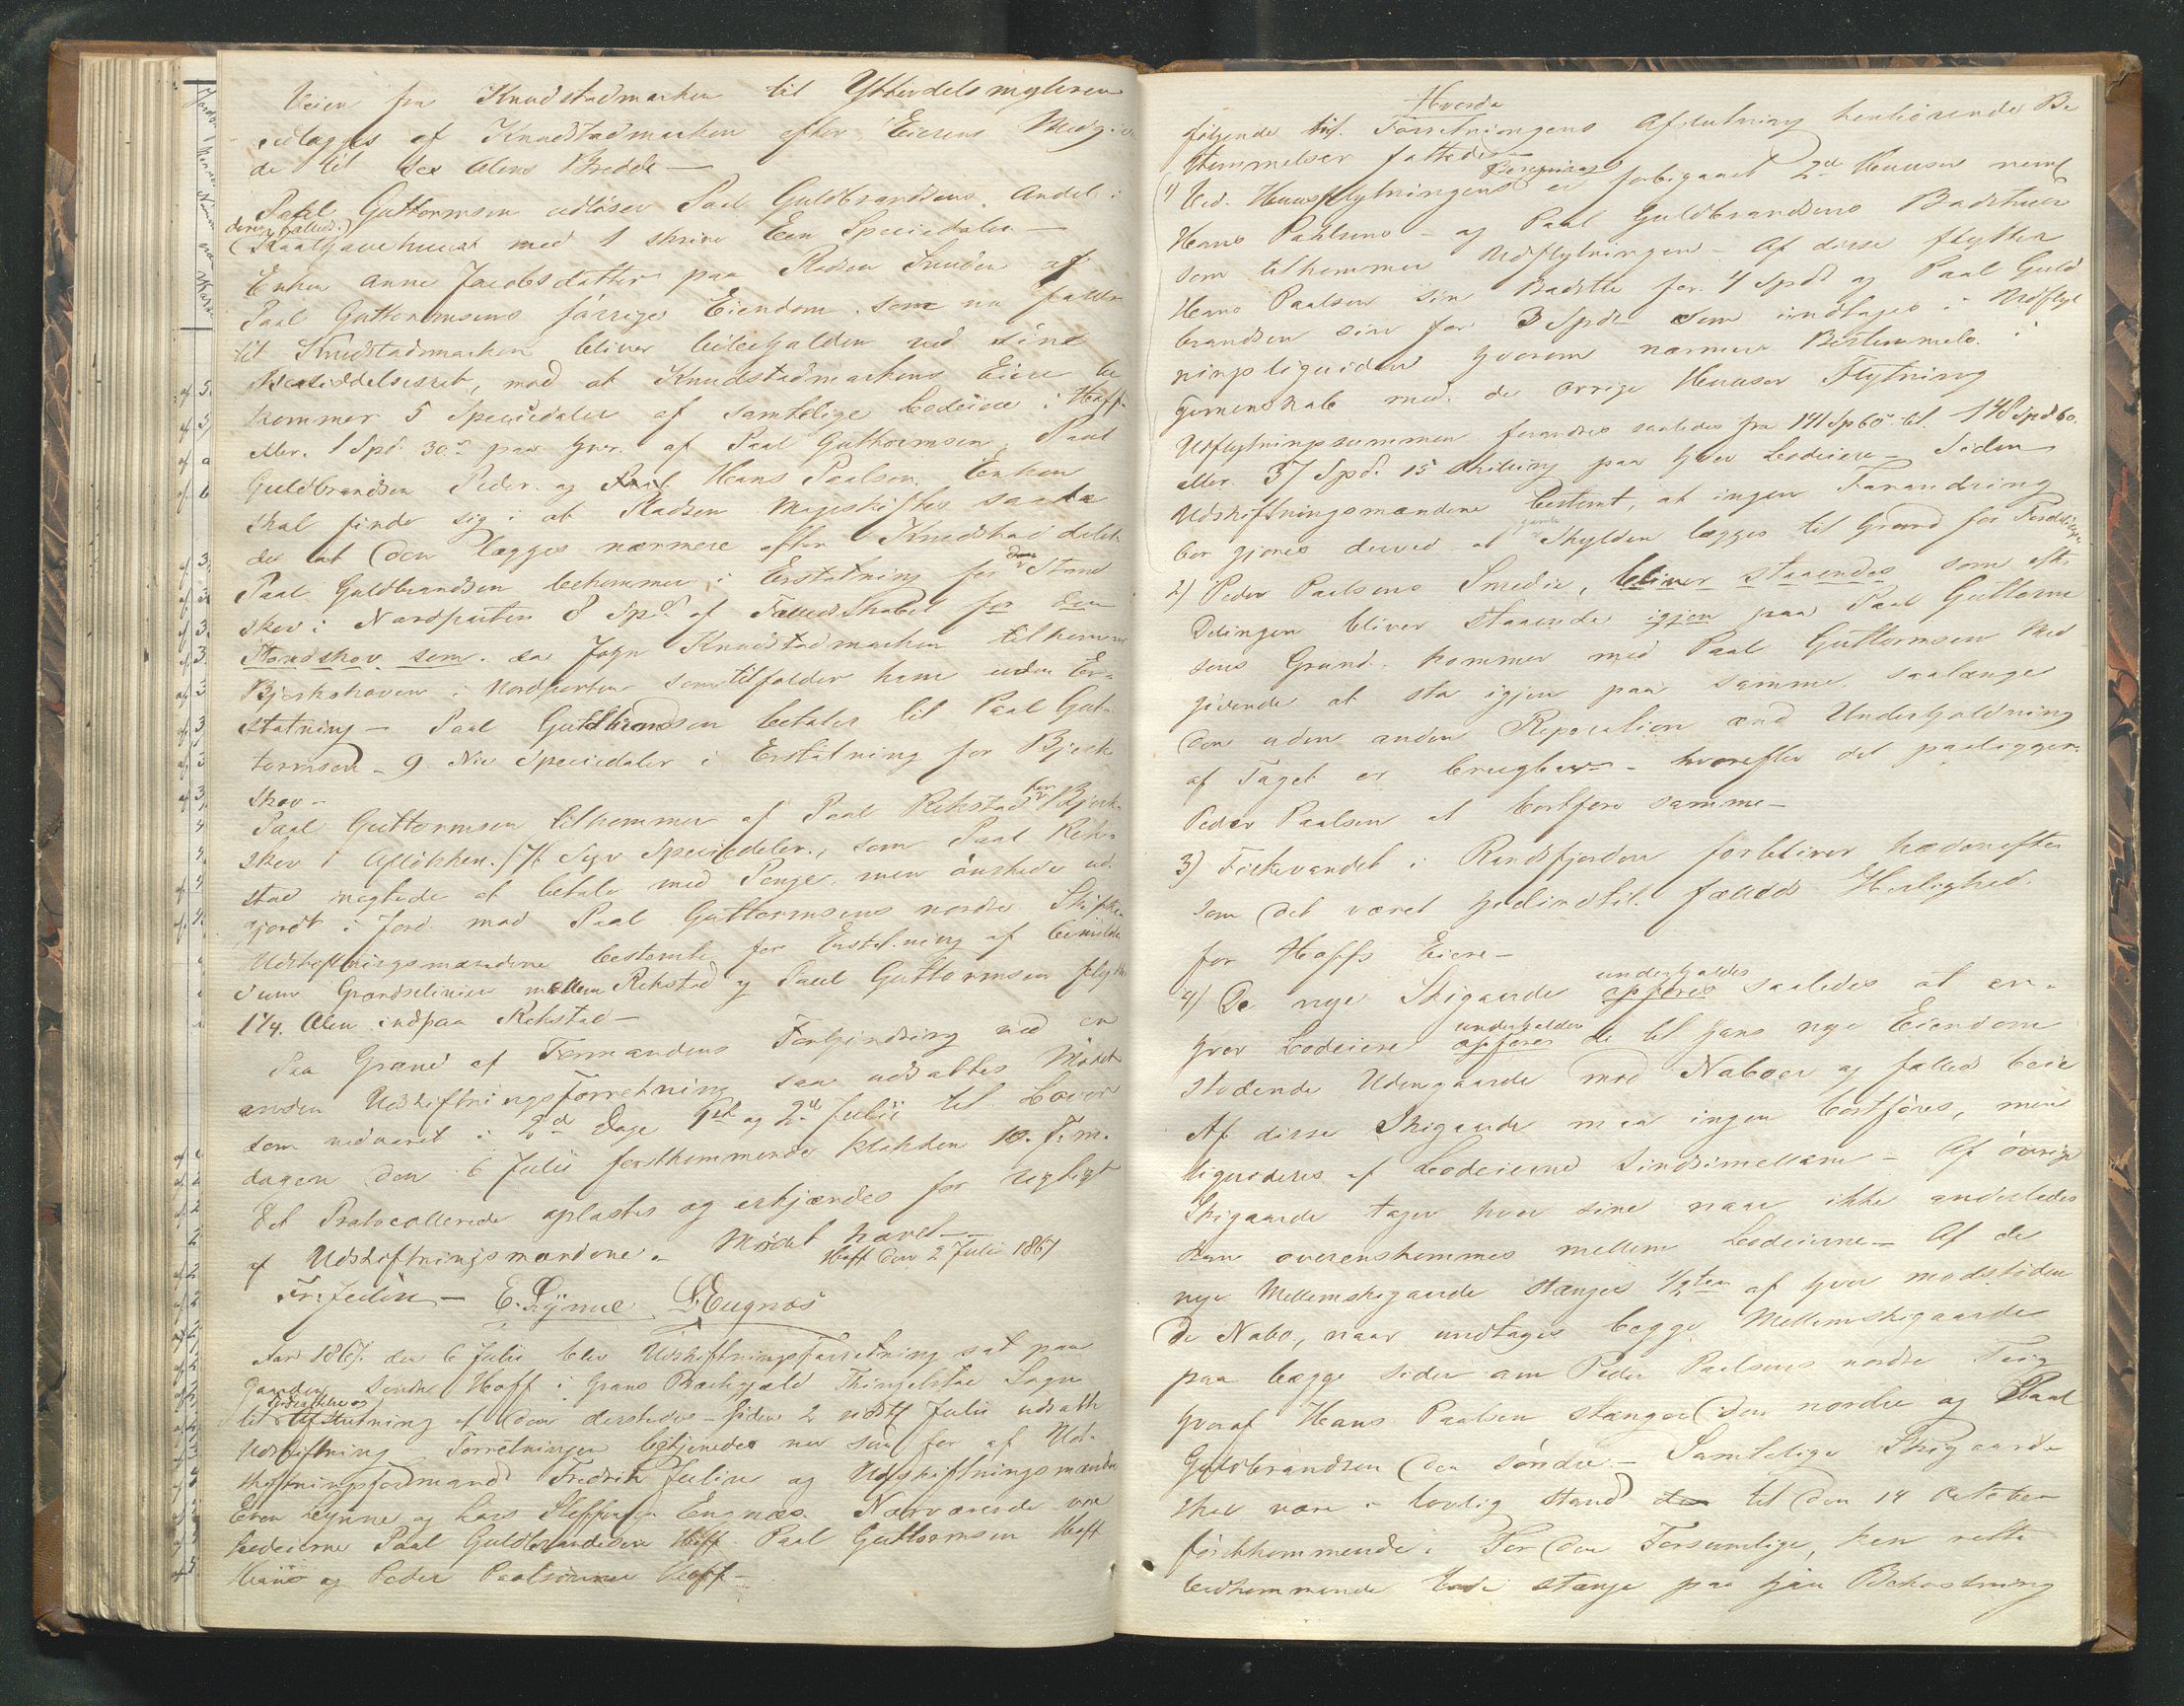 Veien fra Knudstadmarken til
udlægges af Knudstadmarken efter Eierens Medgiven
de til sex Alens Bredde —
Paal Guttormsen udløser Paal Guldbrandsens Andel i
deres fælleds
med 1 skriver Een Speciedaler —
Enken Anne Jacobsdatter paa Pladsen af
Paal Guttormsens forrige Eiendom som nu falder
til Knudstadmarken bliver ved sine
mod at Knudstadmarkens Eiere be
kommer 5 Speciedaler af samtlige Lodeiere i Hoff
eller 1 Spd. 30 s paa hver af Paal Guthormsen, Paal
Guldbrandsen Peder og Hans Paalsen. Enken
skal finde sig i at Pladsen Mageskiftes saale
des at den lægges nærmere efter Knudstad delet
Paal Guldbrandsen bekommer i Erstatning for
skov i Nordputen 8 Spd af Fælledsskabet for den
som tilkommer
Bjerkskoven i Nordputen som tilfalder ham uden Er-
statning — Paal Guldbrandsen betaler til Paal Gut-
tormsen 9 Nie Speciedaler i Erstatning for Bjerk
skov —
Paal Guttormsen tilkommer af Paal Rekstad for Bjerk-
skov i 7 Syv Speciedaler, som Paal Rek-
stad negtede at betale med Penge men ønskede ud-
gjordt i Jord mod Paal Guttormsens nordre Skifte
Udskiftningsmændene bestemte for Erstatning af bemeldte
Sum Grændselinien mellem Rekstad og Paal Guttormsen flyttes
1 1/4 Alen indpaa Rekstad —
Paa Grund af Formandens Forhindring ved en
anden Udskiftningsforretning saa udsattes Mødet
som vedvaret i 2de Dage 1ste og 2de Julii til Løver
dagen den 6 Julii førstkommende Klokken 10 F.m.
Det Protocollerede oplæstes og erkjændes for rigtigt
af Udskiftningsmændene — Mødet hævet —
Hoff den 2 Julii 1867
Fr. Juline — E. Lynne L. Eugnæs
Aar 1867 den 6 Julii blev Udskiftningsforretning sat paa
Gaarden Søndre Hoff i Grans Præstegjæld Tingelstad Sogn
til Fortsættelse og
Afslutning af den dersteds siden 2 Julii udsatte
Udskiftning Forretningen betjenedes nu som før af Ud-
skiftningsformand Fredrik Juline og Udskiftningsmænden
Even Lynne og Lars Steffensen Engnæs. Nærværende vare
Lodeierne Paal Guldbrandsen Hoff Paal Guttormsen Hoff
Hans og Peder Paalsønner Hoff —
Hvorda
følgende til Forretningens Afslutning henhørende Be
stemmelser fattedes —
1) Ved Huusflytningens Beregning er forbigaaet 2de Huuser neml
Hans Paalsens — og Paal Guldbrandsens Badstuer
som tilkommer Udflytningen — Af disse flytter
Hans Paalsen sin Badstu for 4 Spd og Paal Guld
brandsen sin for 3 Spd som indtages i Udflyt
ningsliquiden hvorom nærmere Bestemmelse i
Gjemenskab med de øvrige Huuser Flytning
Udflytningssummen forandres saaledes fra 141 Sp 60 til 148 Spd 60
eller 37 Spd 15 Skilling paa hver Lodeier — Siden
Udskiftningsmændene bestemt, at ingen Forandring
bør gjøres derved at gamle Skylden lægges til Grund for Fordelingen
2) Peder Paalsens Smedie, bliver staaendes som efter
Delingen bliver staaende igjen paa Paal Guttorm
sens Grund kommer med Paal Guttormsens Med
givende at sta igjen paa samme saalænge
den uden anden Reparation end Underholdning
af Taget er brugbar — hvorefter det paaligger
Peder Paalsen at bortføre samme —
3) Fiskevandet i Randsfjorden forbliver hædanefter
som det været hidindtil fælleds Herlighed
for Hoffs Eiere —
underholdes
4) De nye Skigarde opføres saaledes at en-
underholder
hver Lodeiere opfører de til hans nye Eiendom
stødende Udengaarde mod Naboer og fælleds Veie
Af disse Skigarde maa ingen bortføres, men
liquideres af Lodeierne Sindsimellem — Af øvrige
Skigaarde tager hver sine naar ikke anderledes
kan overenskommes mellem Lodeierne — Af de
nye Mellemskigaarde stænges 1/2ten af hver modstøden
de Nabo, naar undtages begge Mellemskigaarde
paa begge sider om Peder Paalsens nordre Teig
hvoraf Hans Paalsen stænger den nordre og Paal
Guldbrandsen den søndre — Samtlige Skigaarde
skal være i lovlig stand til den 14 October
førstkommende. For den Forsømlige, kan rette
vedkommende lade stænge paa hans Bekostning